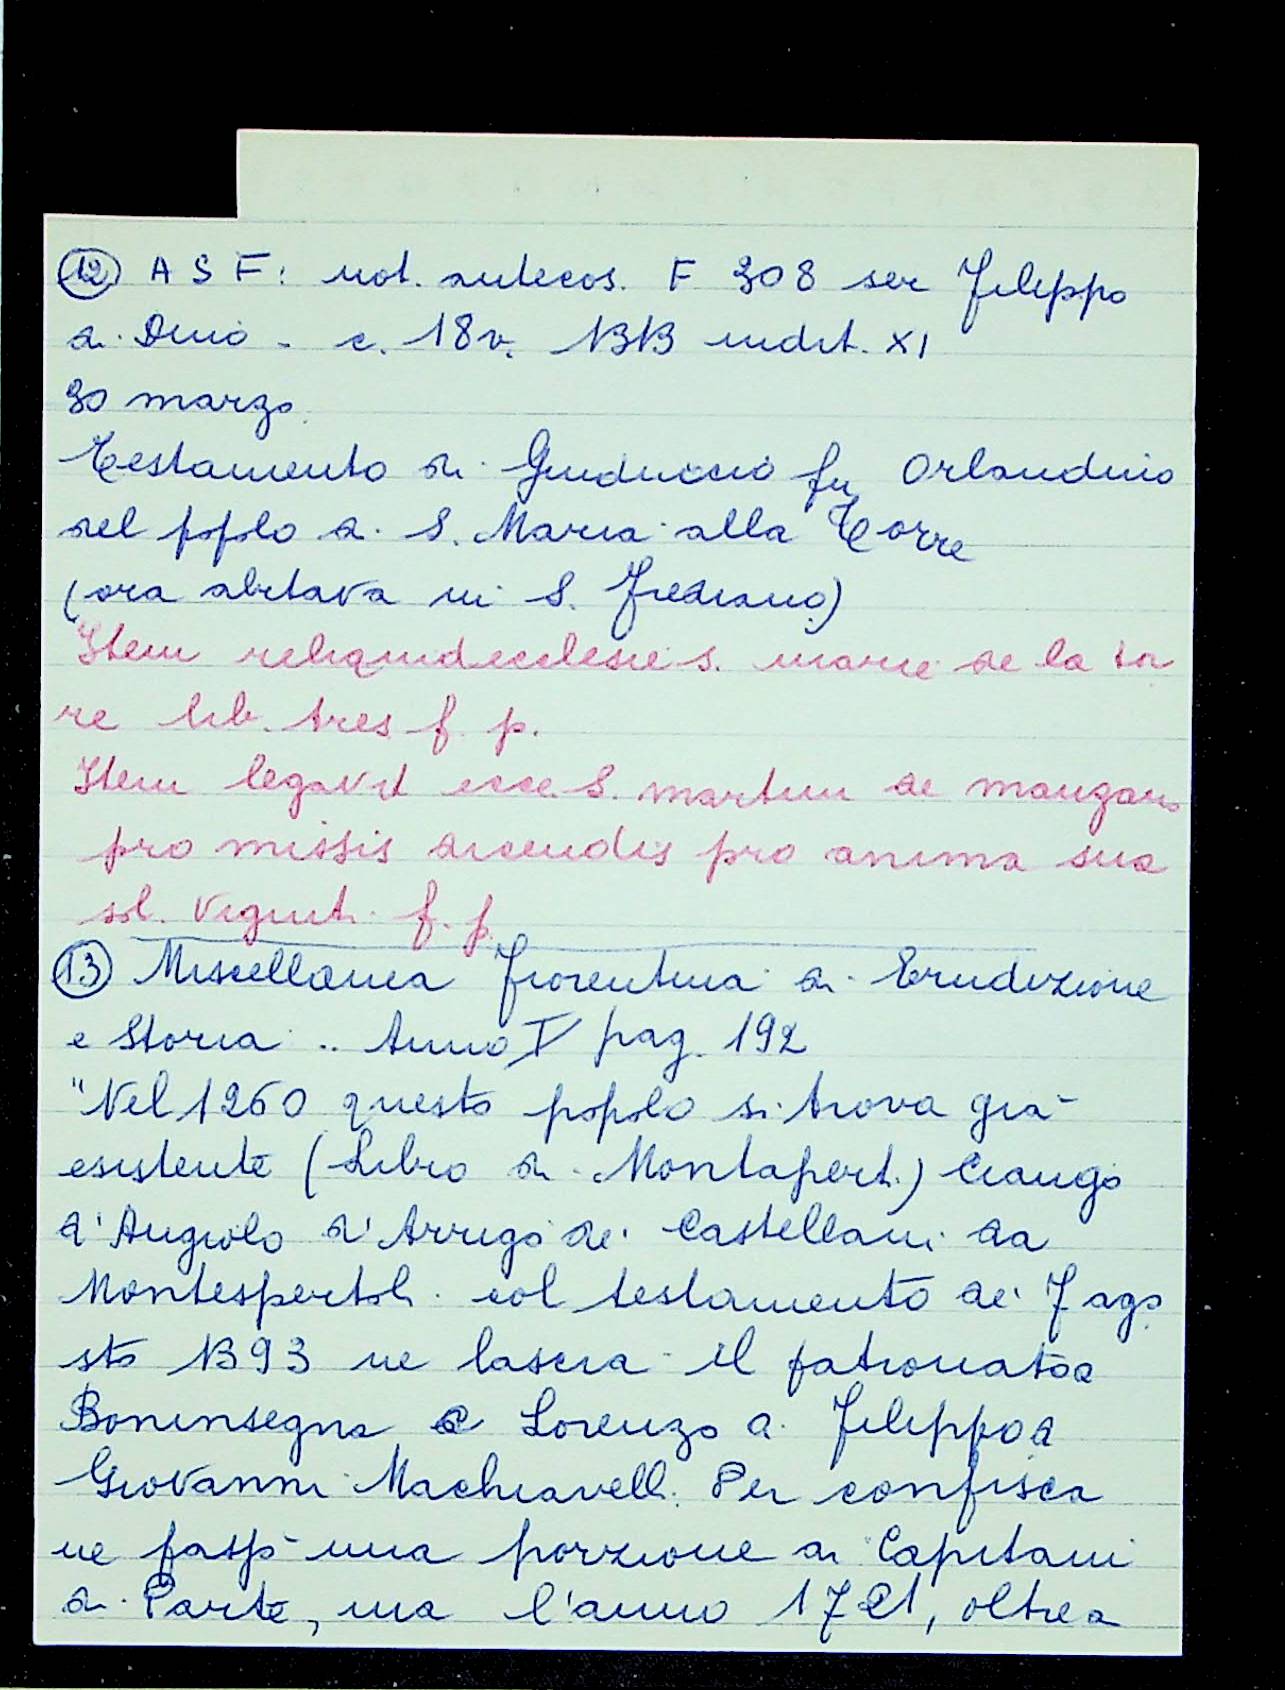 12 A S F: not. antecos. F 308 ser Filippo
di Dino - c. 18v. 1313 indit. XI
30 marzo.
Testamento di Guiduccio fu Orlandino
del popolo di S. Maria alla Torre
(ora abitava in S. Frediano)
Item reliquid ecclesie s. marie de la tor
re lib. tres f. p.
Item legavit ecce. S. martini de manzano
pro missis dicendis pro anima sua
sol. viginti f. p.
13 Miscellanea Fiorentina di Erudizione
e Storia .. Anno V pag. 192
"Nel 1260 questo popolo si trova già
esistente (Libro di Montaperti) Ciango
d'Angiolo d'Arrigo dei Castellani da
Montespertoli col testamento dei 7 ago
sto 1393 ne lascia il patronato a
Boninsegna e Lorenzo di Filippo di
Giovanni Machiavelli. Per confisca
ne passò una porzione ai Capitani
di Parte, ma l'anno 1721, oltre a